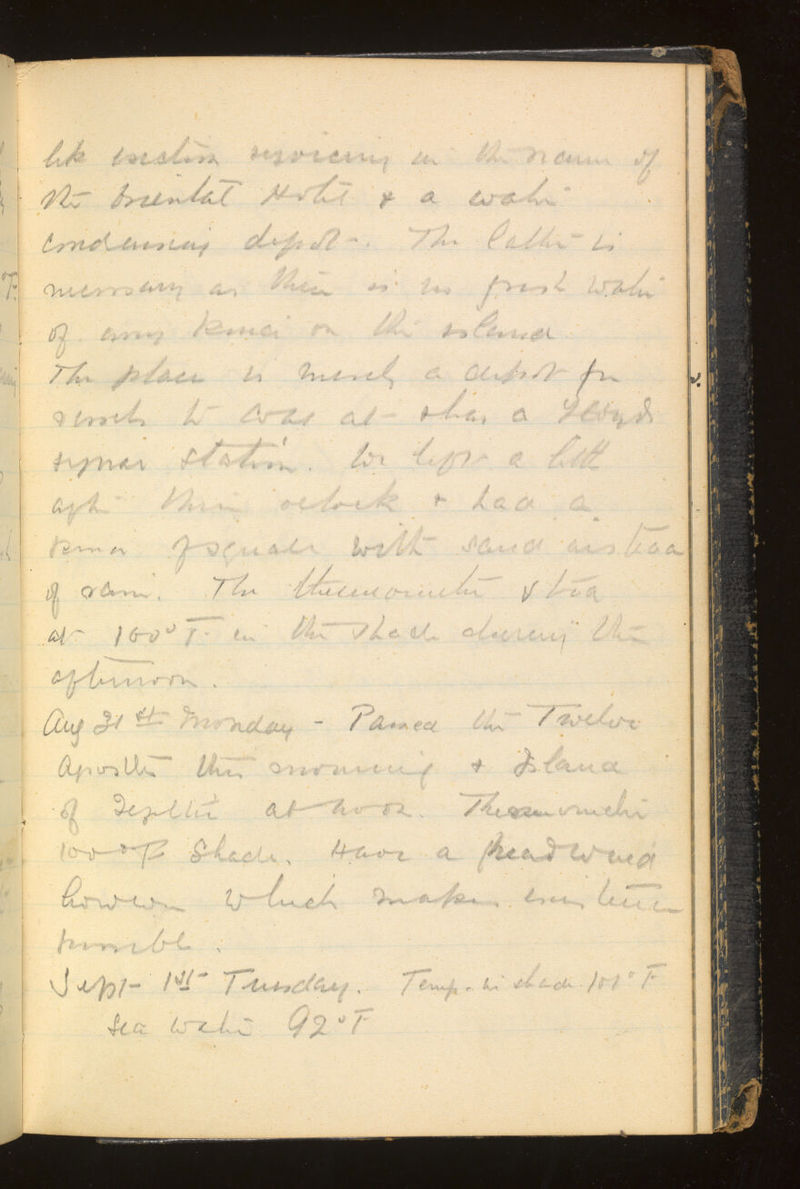 like erection rejoicing in the name of
the Oriental Hotel & a water
condensing depot-. The latter is
necessary as there is no fresh water
of any kind on the island
The place is merely a depot for
vessels to coal at & has a Lloyds
signal station. We left a little
after three oclock & had a
kind of squall with sand instead
of rain. The thermometer stood
at 100° F. in the shade during the
afternoon.
Aug 31st Monday - Passed the Twelve
Apostles this morning & Island
of at noon. Thermometer
100° F Shade. Have a headwind
however which makes existence
possible.
Sept- 1st Tuesday. Temp. in shade 101° F
Sea water 92° F